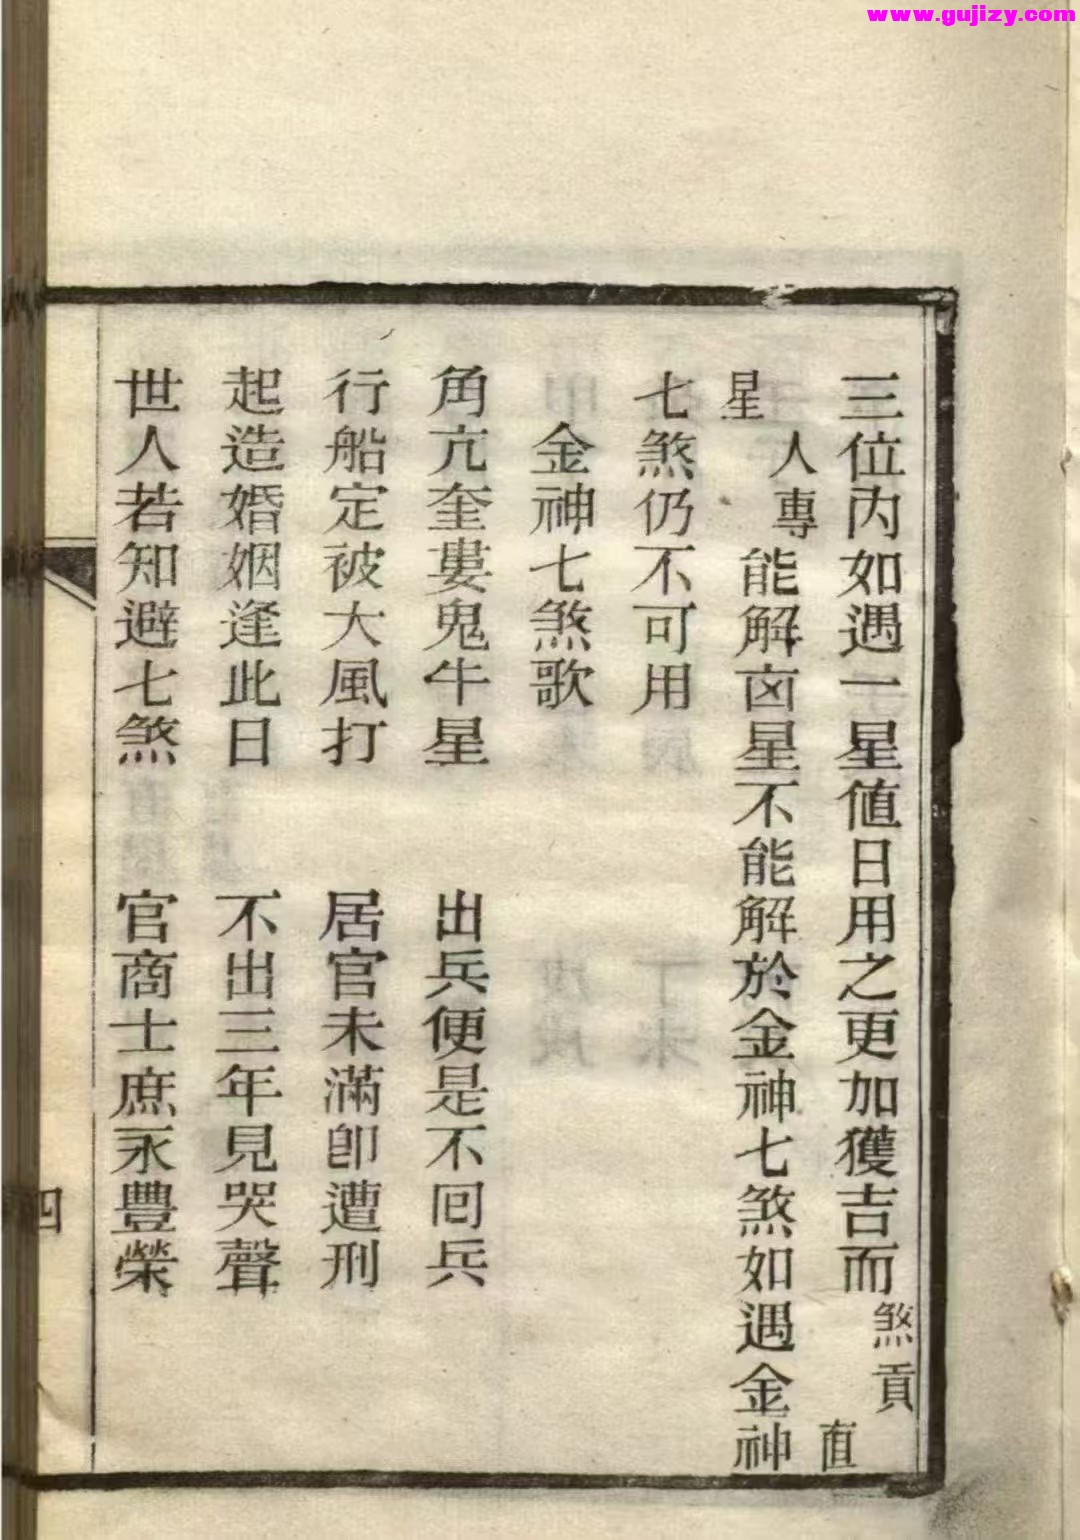 www.gujizy.com
三位内如遇一星値日用之更加獲吉而煞貢直
人專星能解㐫星不能解於金神七煞如遇金神
七煞仍不可用
金神七煞歌
角亢奎婁鬼牛星 出兵便是不囘兵
行船定被大風打 居官未滿卽遭刑
起造婚姻逢此日 不出三年見哭聲
世人若知避七煞 官商士庶永豐榮
四